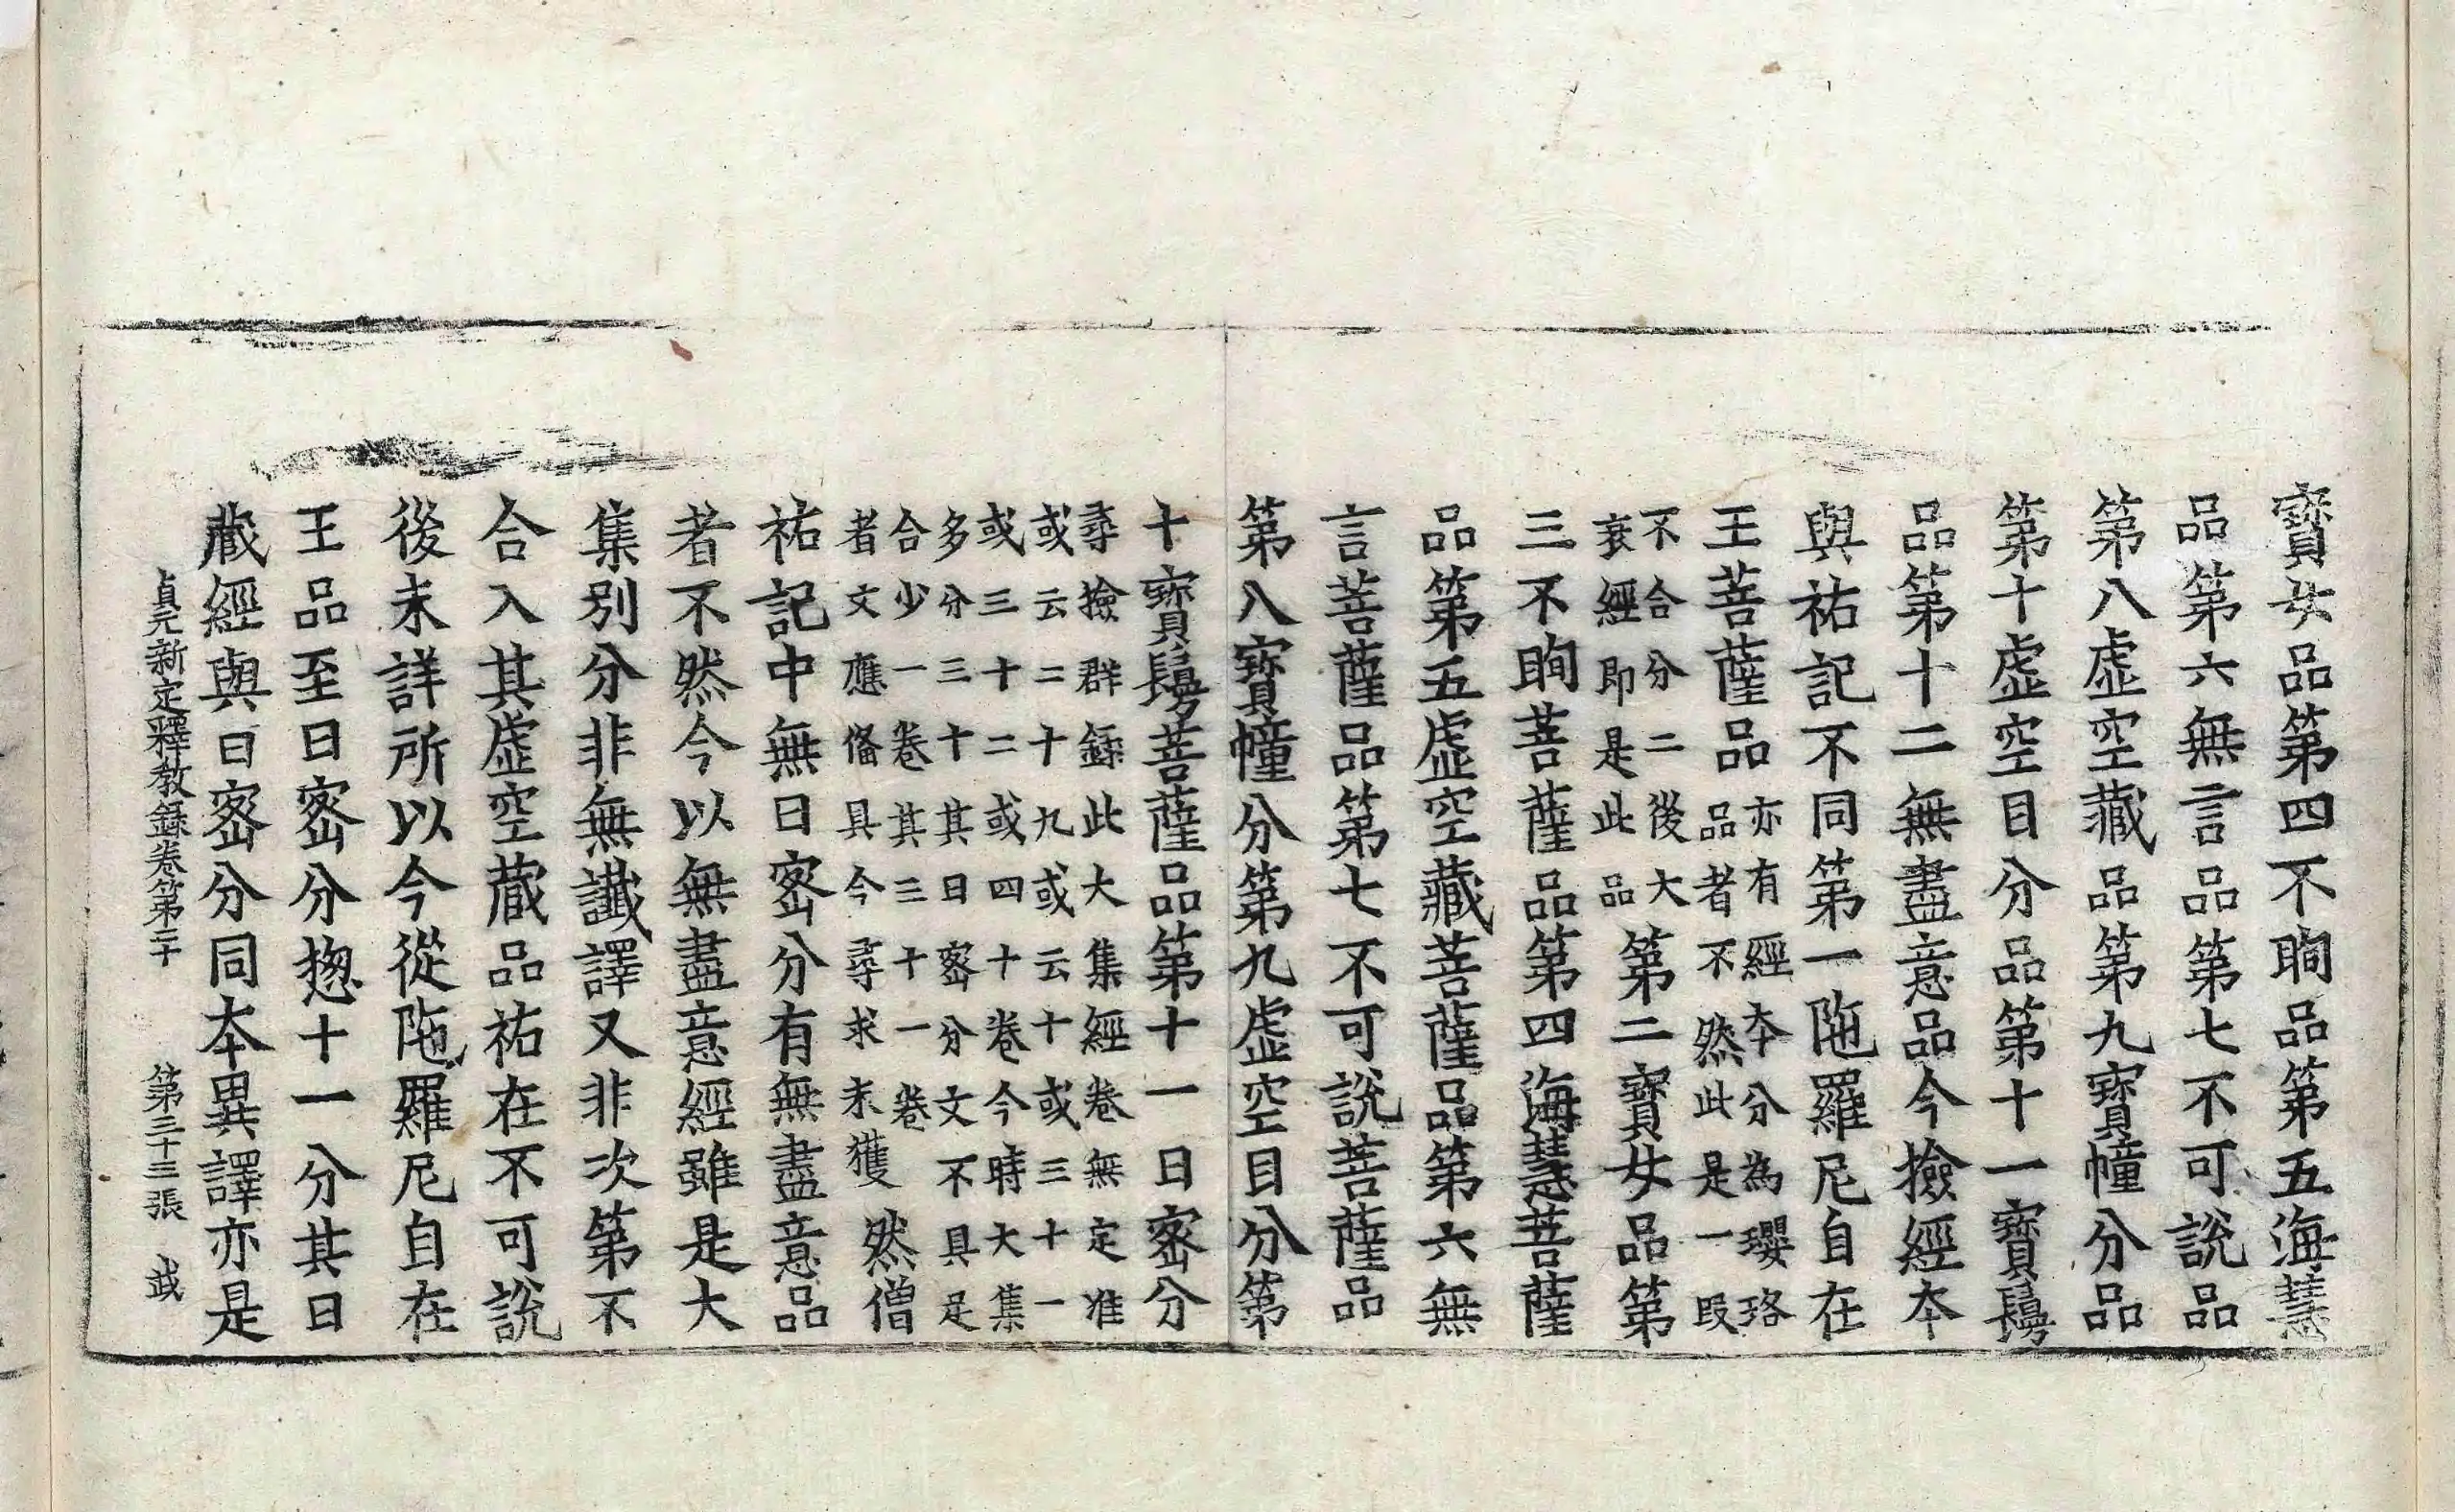 寶女品第四不眴品第五海慧
品第六無言品第七不可說品
第八虛空藏品第九寶幢分品
第十虛空目分品第十一寶髻
品第十二無盡意品今撿經本
與祐記不同第一陁羅尼自在
王菩薩品亦有經本分為瓔珞
品者不然此是一段
不合分二後大
衰經即是此品第二寶女品第
三不眴菩薩品第四海慧菩薩
品第五虛空藏菩薩品第六無
言菩薩品第七不可說菩薩品
第八寶幢分第九虛空目分第
十寶髻菩薩品第十一日密分
尋撿群錄此大集經卷無定准
或云二十九或云十或三十一
或三十二或四十卷今時大集
多分三十其日密分文不具足
合少一卷其三十一卷
者文應俻具今尋求未獲然僧
祐記中無日密分有無盡意品
者不然今以無盡意經雖是大
集別分非無讖譯又非次第不
合入其虛空藏品祐在不可說
後未詳所以今從陁羅尼自在
王品至日密分揔十一分其日
藏經與日密分同本異譯亦是
貞元新定釋教錄卷第二十　第三十三張